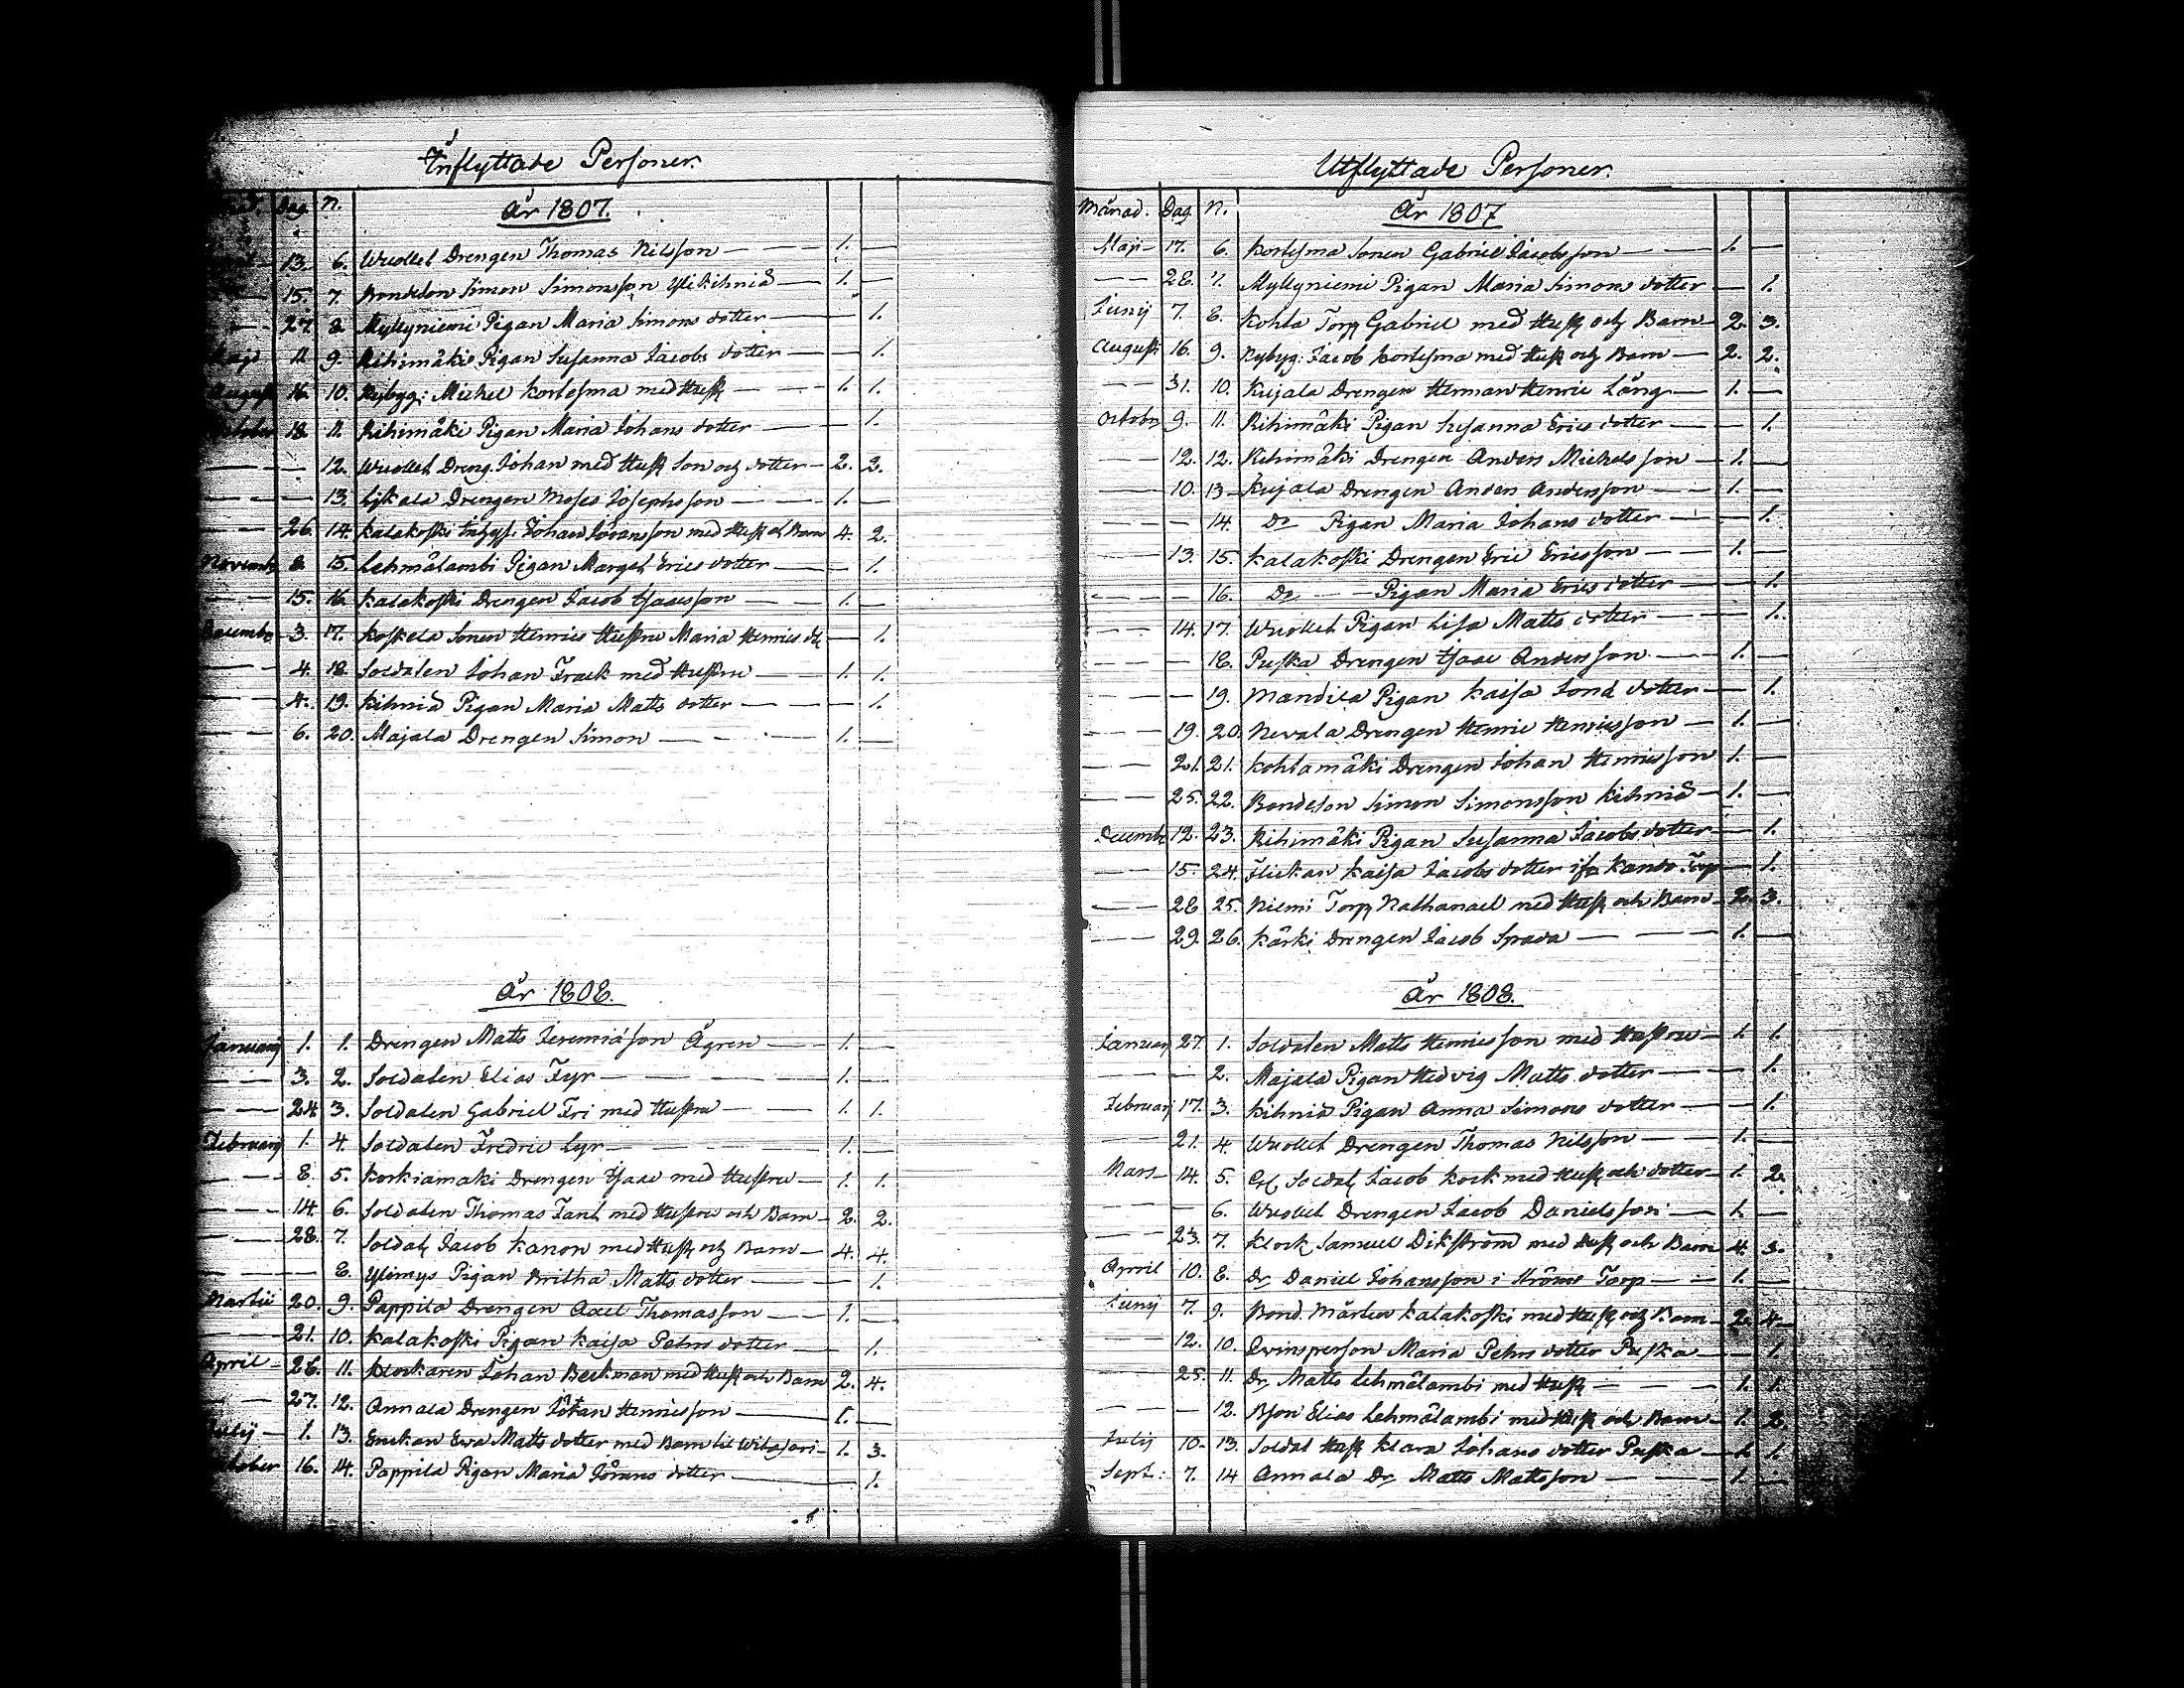 Inflyttade Personer.
Dag. N. År 1807.
13. 6. Wuollet Drengen Thomas Nilsson — 1. —
15. 7. Bondeson Simon Simonsson Ylikihniä — 1. —
27. 8. Myllyniemi Pigan Maria Simons dotter — 1.
Maji 11. 9. Rihimäki Pigan Susanna Jacobs dotter — 1.
August 16. 10. Nybygg: Michel Kortesma med Hust — 1. 1.
October 18. 11. Rihimäki Pigan Maria Johans dotter — 1.
— — 12. Wuollet Dreng. Johan med Hust Son och dotter — 2. 2.
— — 13. Drengen Moses Josephsson — 1. —
— 26. 14. Kalakoski Johan Göransson med Hust och Barn 4. 2.
Novemb 8. 15. Lehmälambi Pigan Marget Erics dotter — 1.
— 15. 16. Kalakoski Drengen Jacob Isaacsson — 1. —
Decembr 3. 17. Koskela Sonen Henrics Hustru Maria Henrics dr — 1.
— 4. 18. Soldaten Johan Frack med Hustru — 1. 1.
— 4. 19. Kihniä Pigan Maria Matts dotter — 1.
— 6. 20. Majala Drengen Simon — 1. —
År 1808.
Januarij 1. 1. Drengen Matts Jeremiäson Ågren — 1. —
— 3. 2. Soldaten Elias Fyr — 1. —
— 24. 3. Soldaten Gabriel Fri med Hustru — 1. 1.
Februarij 1. 4. Soldaten Fredric Cyr — 1. —
— 8. 5. Korkiamaki Drengen Isaac med Hustru — 1. 1.
— 14. 6. Soldaten Thomas Fant med Hustru och Barn — 2. 2.
— 28. 7. Soldat Jacob Kanon med Hust och Barn — 4. 4.
— — 8. Ylimys Pigan Britha Matts dotter — 1.
Martii 20. 9. Pappila Drengen Axel Thomasson — 1. —
— 21. 10. Kalakoski Pigan Kaisa Pehrs dotter — 1.
April 26. 11. Klockaren Johan Beckman med Hust och Barn 2. 4.
— 27. 12. Annala Drengen Johan Henricsson — 1. —
Julij 1. 13. Enckan Ewa Matts dotter med Barn til Witasari — 1. 3.
October 16. 14. Pappila Pigan Maria Görans dotter — 1.
Utflyttade Personer.
Månad. Dag. N. År 1807
Maji — 17. 6. Kortesma Sonen Gabriel Jacobsson — 1. —
— 28. 7. Myllyniemi Pigan Maria Simons dotter — 1.
Junij 7. 8. Kohta Torp Gabriel med Hust och Barn — 2. 3.
August 16. 9. Nybyg: Jacob Kortesma med Hust och Barn — 2. 2.
— 31. 10. Kujala Drengen Herman Henric Lång — 1. —
Octobr 9. 11. Rihimäki Pigan Susanna Erics dotter — 1.
— 12. 12. Rihimäki Drengen Anders Michelsson — 1. —
— 10. 13 Kujala Drengen Anders Andersson — 1. —
— — 14. Do Pigan Maria Johans dotter — 1.
— 13. 15. Kalakoski Drengen Eric Ericsson — 1. —
— — 16. Do — Pigan Maria Erics dotter — 1.
— 14. 17. Wuollet Pigan Lisa Matts dotter — 1.
— — 18. Puska Drengen Isaac Andersson — 1. —
— — 19. Mandila Pigan Kaisa dotter — 1.
— 19. 20. Nevala Drengen Henric Henricsson — 1. —
— 21. 21. Kohtamäki Drengen Johan Henricsson 1. —
— 25. 22. Bondeson Simon Simonsson Kihniä — 1. —
Decembr 12. 23. Rihimäki Pigan Susanna Jacobs dotter — 1.
— 15. 24. Flickan Kaisa Jacobs dotter ifr Kando Torp — 1.
— 28 25. Niemi Torp Nathanael med Hust och Barn — 2. 3.
— 29. 26. Kärki Drengen Jacob Spada — 1. —
År 1808.
Januarij 27. 1. Soldaten Matts Henricsson med Hustru — 1. 1.
— — 2. Majala Pigan Hedvig Matts dotter — 1.
Februarij 17. 3. Kihniä Pigan Anna Simons dotter — 1.
— 21. 4. Wuollet Drengen Thomas Nilsson — 1. —
Mars — 14. 5. Soldat Jacob Kock med Hust och dotter — 1. 2.
— — 6. Wuollet Drengen Jacob Danielsson — 1. —
— 23. 7. Klock Samuel Dikström med Hust och Barn 4. 3.
April 10. 8. Dr Daniel Johansson i Ströms Torp — 1. —
Junij 7. 9. Bond. Mårten Kalakoski med Hust och Barn — 2. 4.
— 12. 10. Qvinsperson Maria Pehrs dotter Puska — 1.
— 25. 11. Dr Matts Lehmälambi med Hust — 1. 1.
— — 12. Bson Elias Lehmälambi med Hust och Barn — 1. 2.
Julij 10. 13. Soldat Hust Klara Johans dotter Puska — 1. 1.
Sept: 7. 14 Annala Dr Matts Mattsson — 1. —